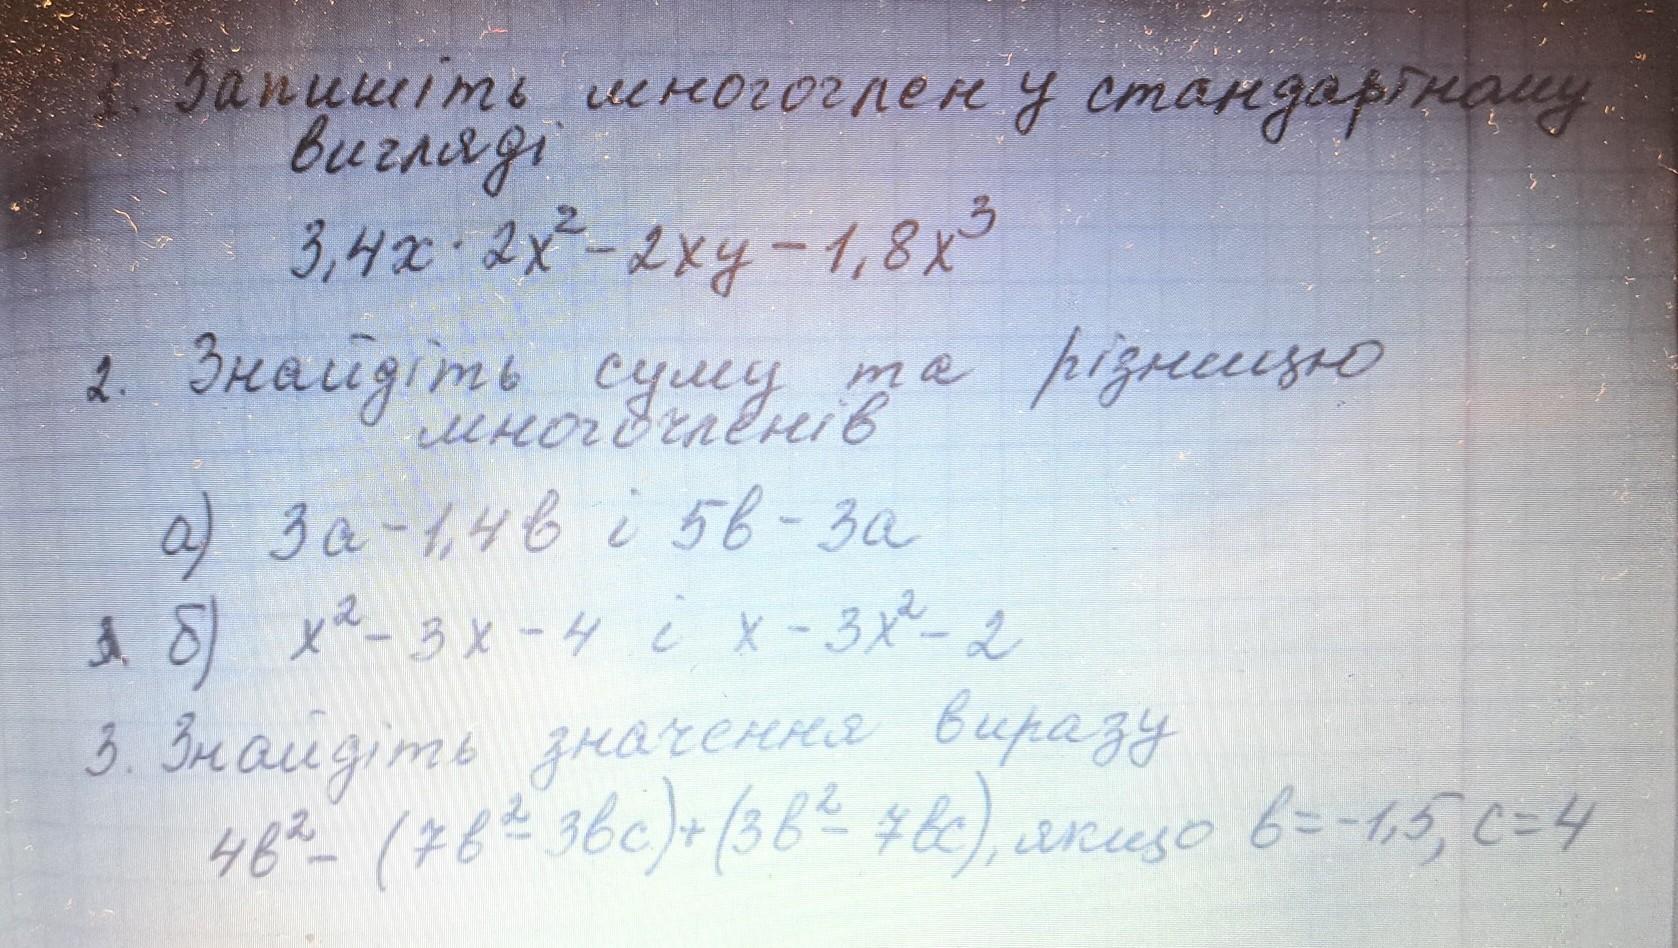 1. Запишіть многочлен у стандартному
вигляді
3,4x · 2x² - 2xy - 1,8x³
2. Знайдіть суму та різницю
многочленів
а) 3a - 1,4b і 5b - 3a
1. б) x² - 3x - 4 і x - 3x² - 2
3. Знайдіть значення виразу
4b² - (7b² - 3bc) + (3b² - 7bc), якщо b = -1,5, c = 4